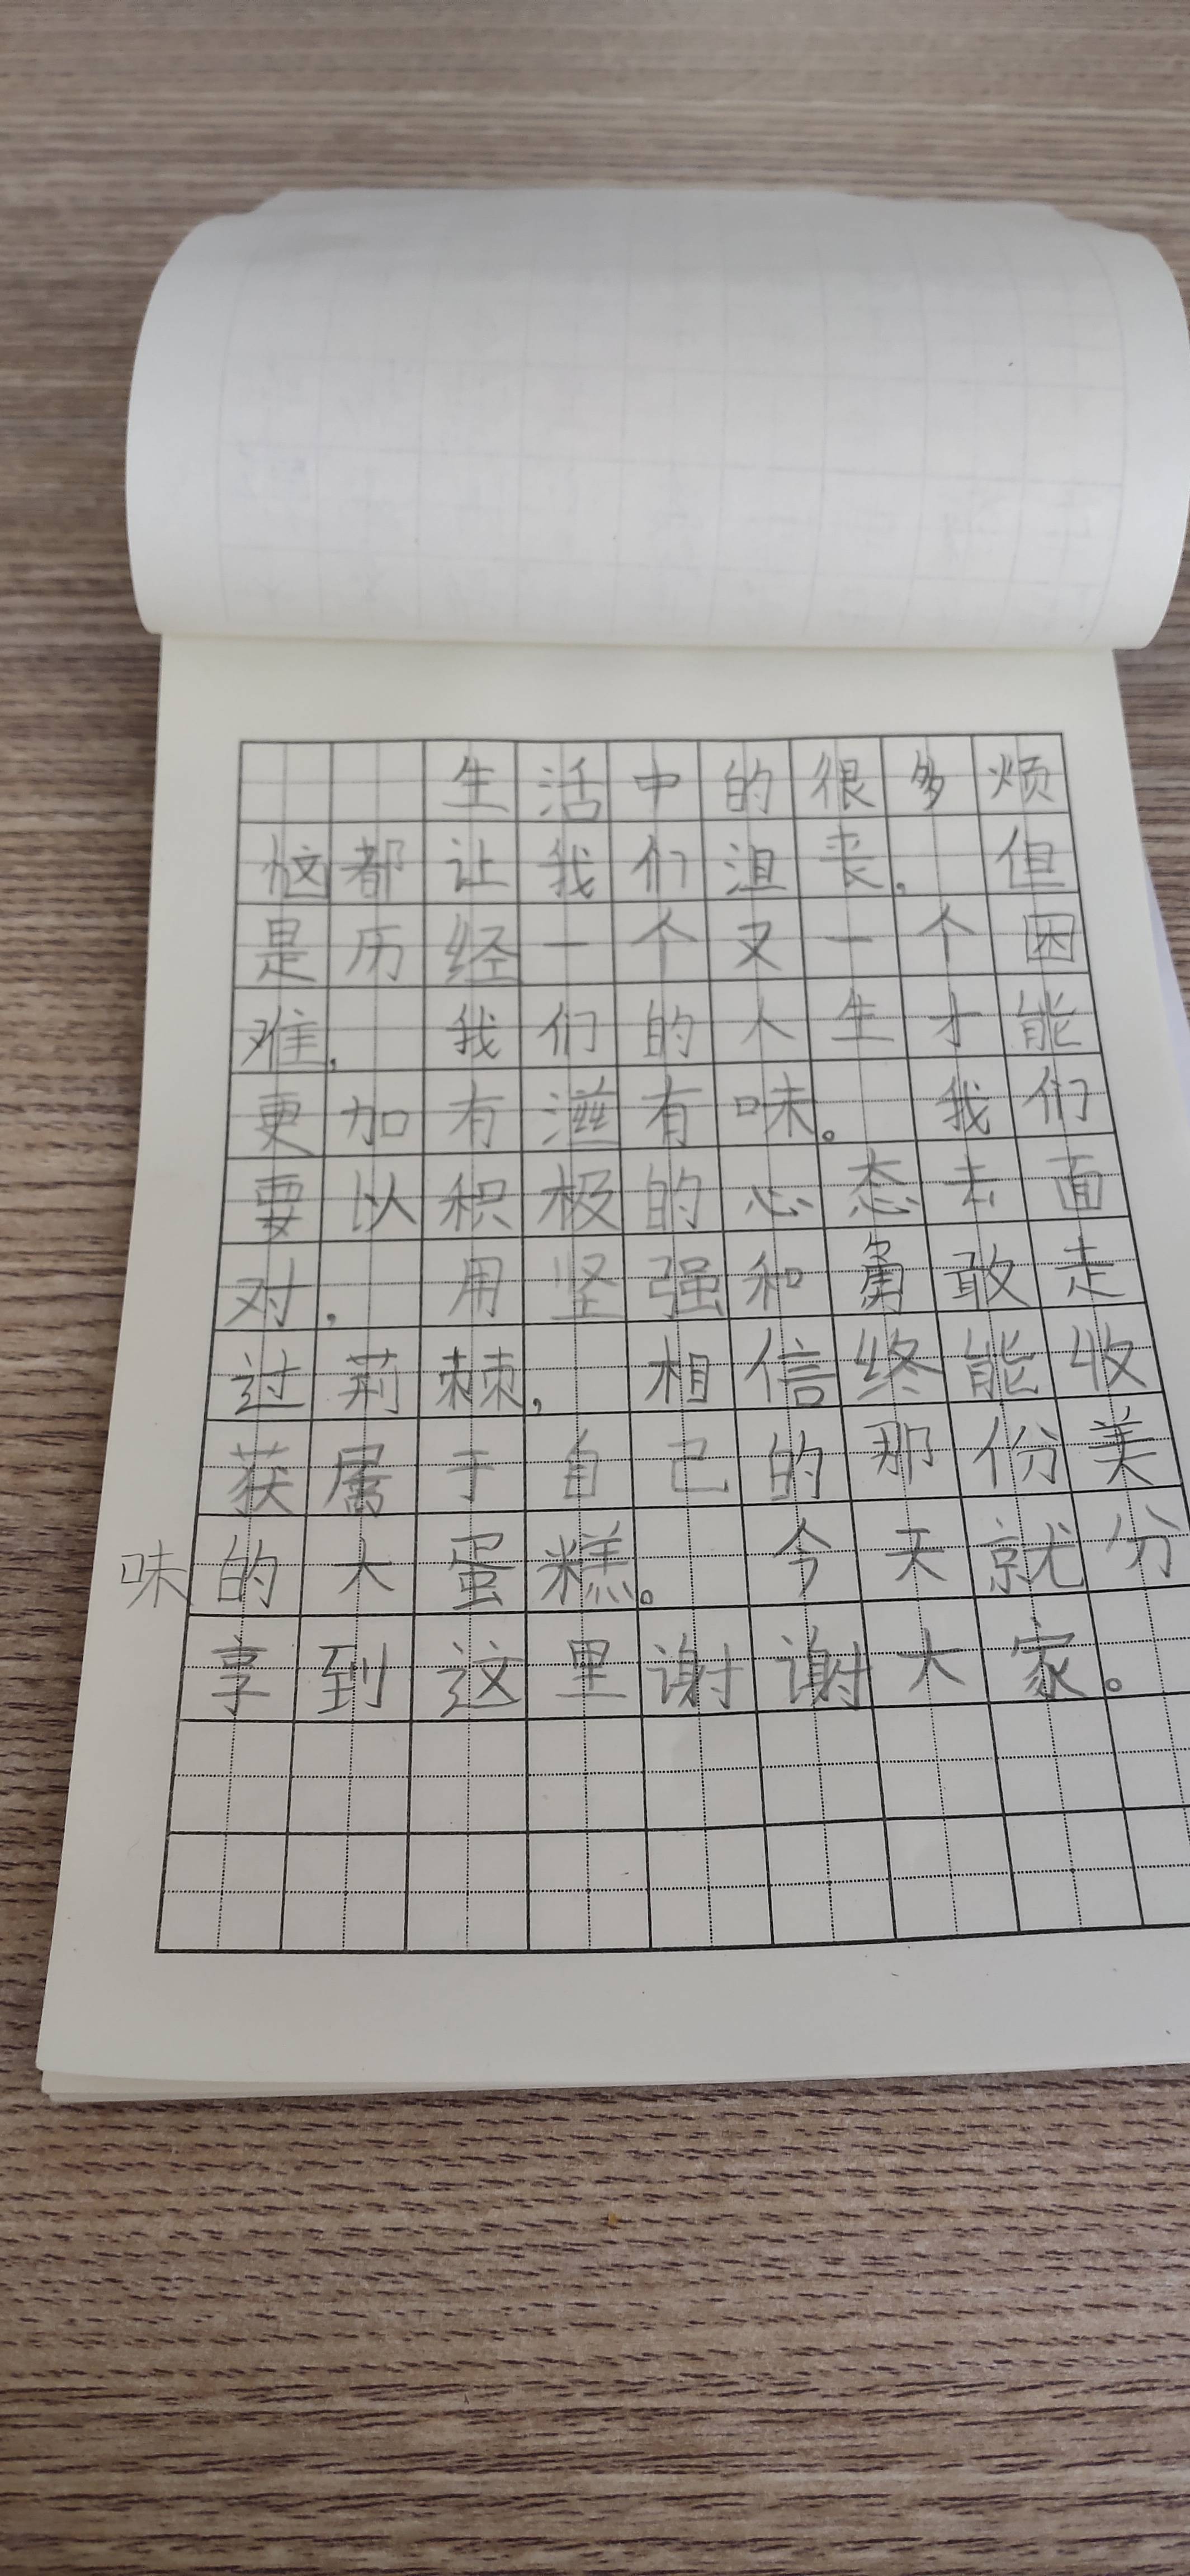 生活中的很多烦
恼都让我们沮丧，但
是历经一个又一个困
难，我们的人生才能
更加有滋有味。我们
要以积极的心态去面
对，用坚强和勇敢走
过荆棘，相信终能收
获属于自己的那份美
味的大蛋糕。今天就分
享到这里谢谢大家。